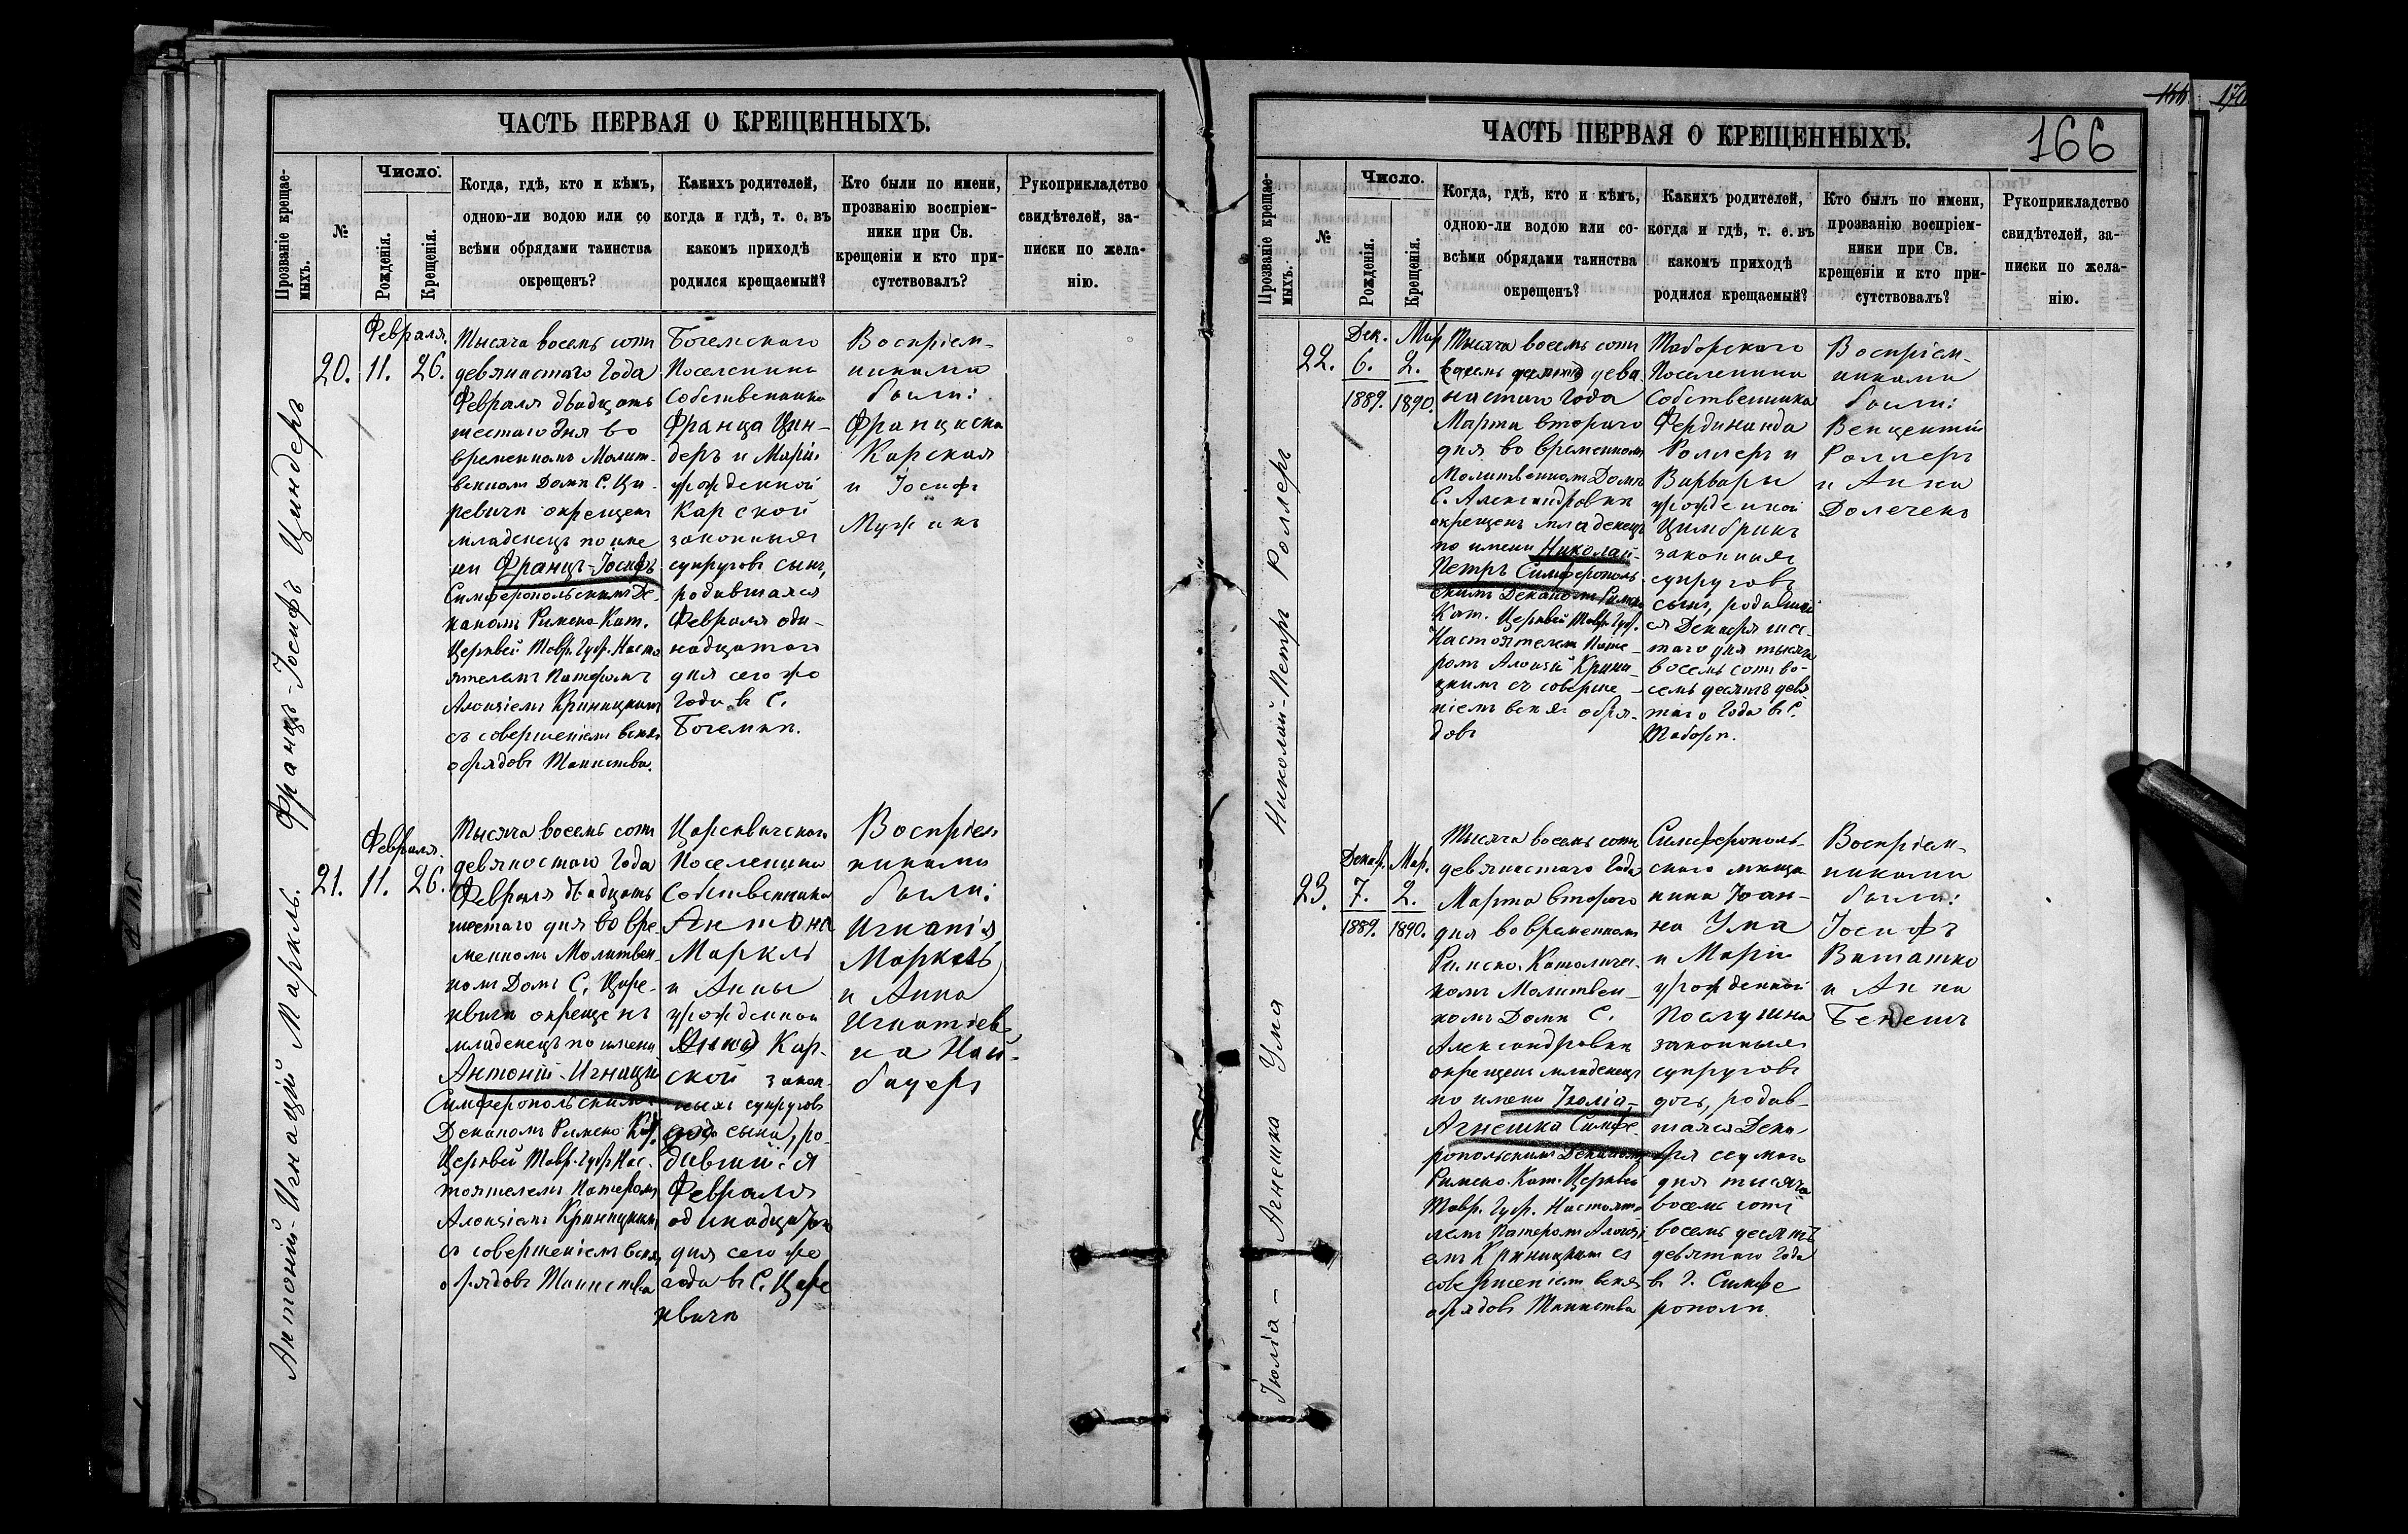 ЧАСТЬ ПЕРВАЯ О КРЕЩЕННЫХЪ.
Прозваніе крещае-
мыхъ.
№
Число.
Рожденія.
Крещенія.
Когда, гдѣ, кто и кѣмъ,
одною-ли водою или со
всѣми обрядами таинства
окрещенъ?
Какихъ родителей,
когда и гдѣ, т. е. въ
какомъ приходѣ
родился крещаемый?
Кто были по имени,
прозванію воспріем-
ники при Св.
крещеніи и кто при-
сутствовалъ?
Рукоприкладство
свидѣтелей, за-
писки по жела-
нію.
Францъ-Іосифъ Циндеръ
Февраля.
20. 11. 26.
Тысяча восемь сотъ
девяностаго Года
Февраля двадцать
шестаго дня во
временномъ Молит-
венномъ Домѣ С. Ца-
ревичъ окрещенъ
младенецъ по име
ни Францъ-Іосифъ
Симферопольскимъ Де-
каномъ Римско-Кат.
Церквей Тавр. Губ. Насто
ятелемъ Патеромъ
Алоизіемъ Криницкимъ
съ совершеніемъ всѣхъ
обрядовъ Таинства.
Богемскаго
Поселенина
Собственника
Франца Цин-
деръ и Маріи
урожденной
Карской
законныхъ
супруговъ сынъ,
родившаяся
Февраля оди-
надцатаго
дня сего же
Года въ С.
Богемкѣ.
Воспріем-
никами
были:
Франциска
Карская
и Іосифъ
Мужикъ
Антоній-Игнацій Маркль.
Февраля.
21. 11. 26.
Тысяча восемь сотъ
девяностаго Года
Февраля двадцать
шестаго дня во вре
менномъ Молитвен-
номъ Домѣ С. Царе-
квичъ окрещенъ
младенецъ по имени
Антоній-Игнацій
Симферопольскимъ
Деканомъ Римско Кат.
Церквей Тавр. Губ. Нас-
тоятелемъ Патеромъ
Алоизіемъ Криницкимъ
съ совершеніемъ всѣхъ
обрядовъ Таинства
Царевичскаго
Поселенина
Собственника
Антона
Маркль
и Анны
урожденной
Кар-
ской закон-
ныхъ супруговъ
сына, ро-
дившийся
Февраля
одинадцатаго
дня сего же
года въ С. Царе
квичъ
Воспріем
никами
были:
Игнатія
Маркль
и Анна
Игнатіев-
на Най-
бауеръ
ЧАСТЬ ПЕРВАЯ О КРЕЩЕННЫХЪ.
166
Прозваніе крещае-
мыхъ.
№
Число.
Рожденія.
Крещенія.
Когда, гдѣ, кто и кѣмъ,
одною-ли водою или со-
всѣми обрядами таинства
окрещенъ?
Какихъ родителей,
когда и гдѣ, т. е. въ
какомъ приходѣ
родился крещаемый?
Кто былъ по имени,
прозванію воспріем-
ники при Св.
крещеніи и кто при-
сутствовалъ?
Рукоприкладство
свидѣтелей, за-
писки по жела-
нію.
Николай-Петръ Роллеръ
Дек. Мар
22. 6. 2.
1889. 1890.
Тысяча восемь сотъ
дева
ностаго Года
Марта втораго
дня во временномъ
Молитвенномъ Домѣ
С. Александровкѣ
окрещенъ младенецъ
по имени Николай-
Петръ Симферополь-
скимъ Деканомъ Римско
Кат. Церквей Тавр. Губ.
Настоятелем Пате-
ромъ Алоизій Крини
цкимъ съ соверше-
ніемъ всѣхъ обря-
довъ
Таборскаго
Поселенина
Собственника
Фердинанда
Роллеръ и
Варвары
урожденной
Цимбрикъ
законныхъ
супруговъ
сынъ, родивший
ся Декабря шес-
таго дня тысяча
восемь сотъ во-
семь десятъ девя
таго Года въ С.
Таборѣ.
Воспріем-
никами
были:
Венцентій
Роллеръ
и Анна
Долеченъ
Іюлія - Агнешка Ума
Декаб. Мар.
23. 7. 2.
1889. 1890.
Тысяча восемь сотъ
девяностаго Года
Марта втораго
дня во временномъ
Римско-Католичес-
комъ Молитвен-
номъ Домѣ С.
Александровкѣ
окрещенъ младенецъ
по имени Іюлія-
Агнешка Симфе-
ропольскимъ Деканомъ
Римско-Кат. Церквей
Тавр. Губ. Настояте
лемъ Патеромъ Алоизі-
емъ Криницкимъ съ
совершеніемъ всѣхъ
обрядовъ Таинства
Симферополь-
скаго мѣща
нина Іоан-
на Ума
и Маріи
урожденной
Послушна
законныхъ
супруговъ
дочь, родив-
шаяся Дека-
бря седмаго
дня тысяча
восемь сотъ
восемь десятъ
девятаго Года
въ Г. Симфе
рополѣ.
Воспріем-
никами
были:
Іосифъ
Ваташко
и Анна
Бенешъ